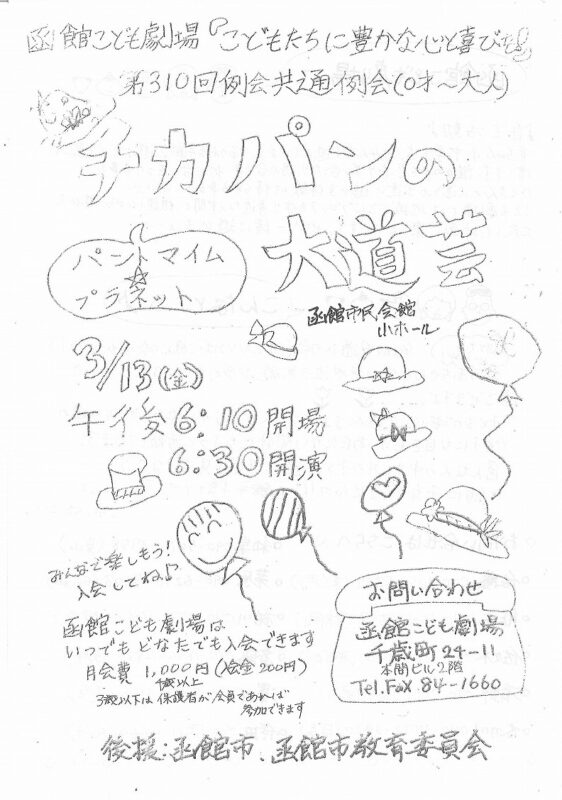 函館こども劇場『こどもたちに豊かな心と喜びを』
第310回例会共通例会(0才〜大人)
チカパンの
大道芸
パントマイム
プラネット
函館市民会館
小ホール
3/13(金)
午後6:10開場
6:30開演
みんなで楽しもう!
入会してね!?
函館こども劇場は
いつでもどなたでも入会できます
月会費 1,000円(入会金200円)
4歳以上
3歳以下は保護者が会員であれば
参加できます
お問い合わせ
函館こども劇場
千歳町24-11
本間ビル2階
Tel.Fax 84-1660
後援:函館市、函館市教育委員会